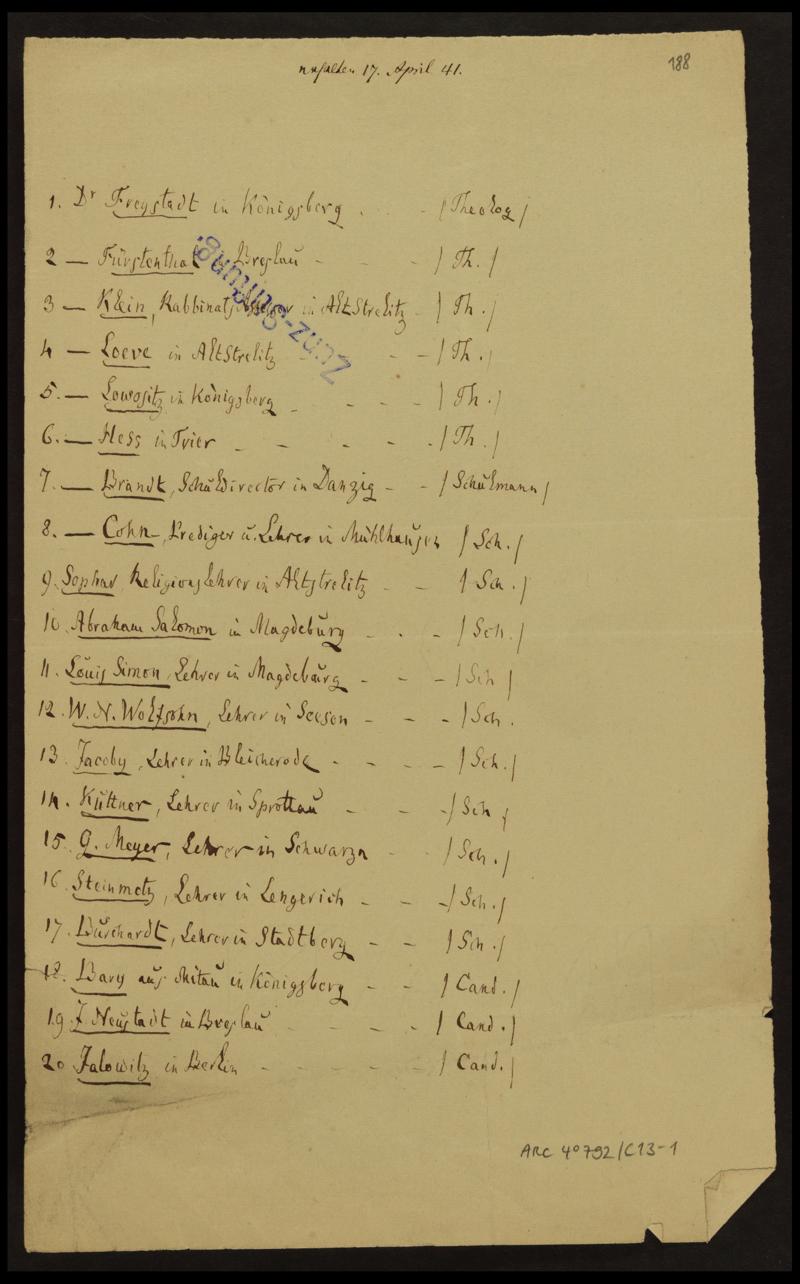 erhalten 17. April 41.
188
1. Dr Freystadt in Königsberg . . - / Theolog /
2 — Fürstenthal in Breslau - - - / Th. /
3 — Klein, Rabbinats Assessor in AltStrelitz - / Th. /
4 — Loeve in AltStrelitz - - - / Th. /
5. — Lowositz in Königsberg - - - - / Th. /
6. — Hess in Trier - - - - . / Th. /
7. — Brandt, Schuldirector in Danzig - - / Schulmann /
8. — Cohn, Prediger u. Lehrer in Mühlhausen / Sch. /
9. Religionslehrer in Altstrelitz - - / Sch. /
10. Abraham Salomon in Magdeburg - . - / Sch. /
11. Louis Simon, Lehrer in Magdeburg - - - / Sch /
12. W. N. Wolfsohn, Lehrer in Seesen - - - / Sch.
13. Jacoby, Lehrer in Bleicherode - - - - / Sch. /
14. Küttner, Lehrer in Sprottau - - - / Sch /
15. G. Meyer, Lehrer in Schwarza - - / Sch. /
16. Steinmetz, Lehrer in Lengerich - - - / Sch. /
17. Burchardt, Lehrer in Stadtberg - - / Sch. /
18. Bary aus Mitau in Königsberg - - / Cand. /
19. J. Neustadt in Breslau - - - - / Cand. /
20 Jalowitz in Berlin - - - - - / Cand. /
Sammlung-Zunz
ARC 4° 792/C13-1